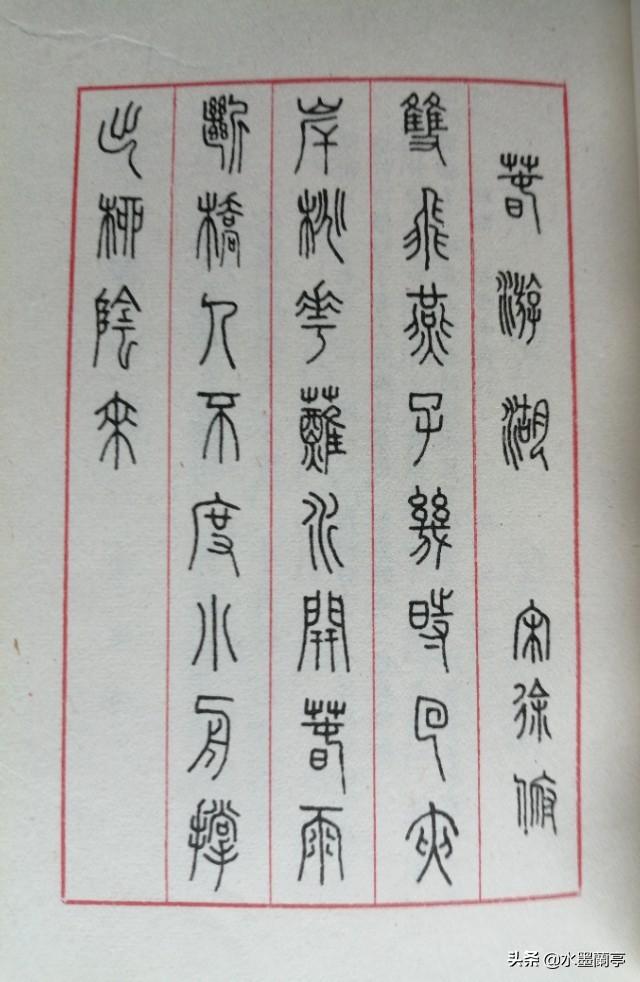 春游湖 宋徐俯
雙飛燕子幾時回夾
岸桃花蘸水開春雨
斷橋人不度小舟撐
出柳陰來
头条 @水墨蘭亭